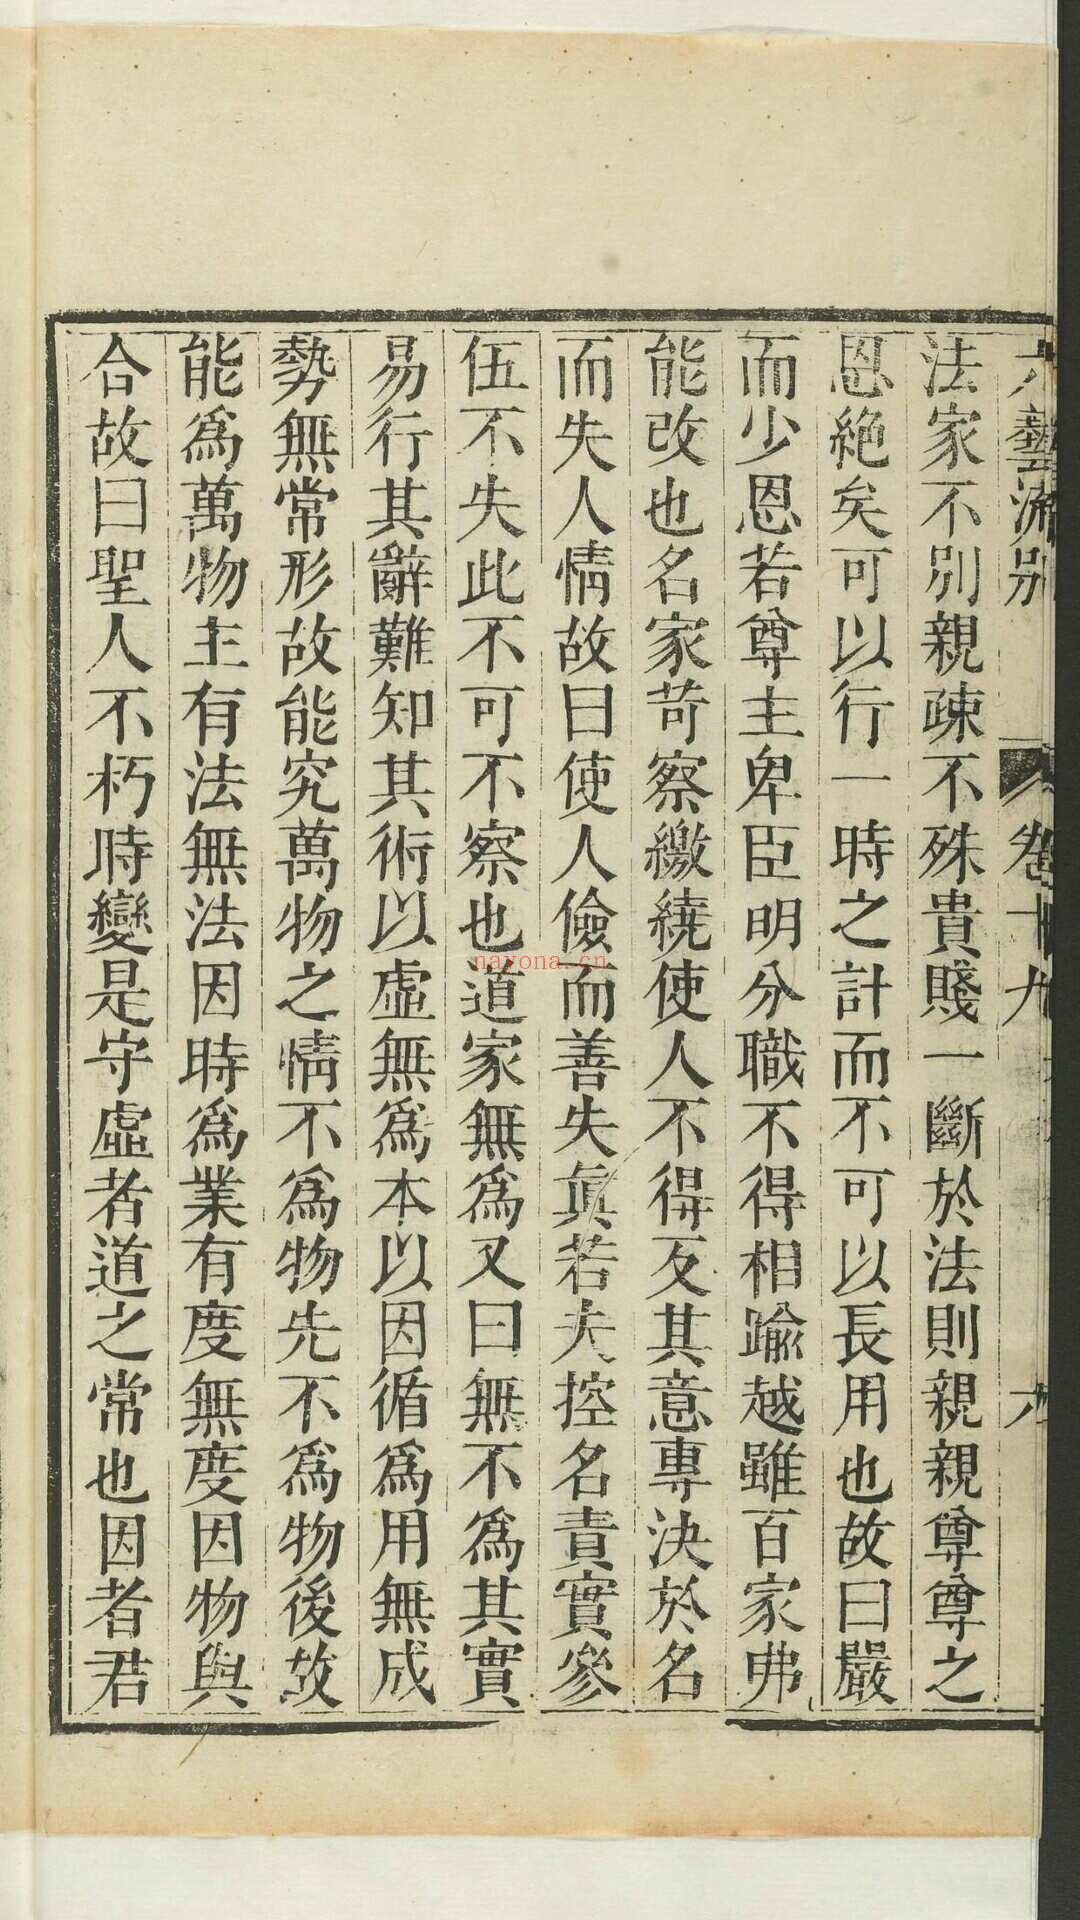 六藝流別 卷十九
法家不別親疎不殊貴賤一斷於法則親親尊尊之
恩絶矣可以行一時之計而不可以長用也故曰嚴
而少恩若尊主卑臣明分職不得相踰越雖百家弗
能改也名家苛察繳繞使人不得反其意專決於名
而失人情故曰使人儉而善失眞若夫控名責實參
伍不失此不可不察也道家無爲又曰無不爲其實
易行其辭難知其術以虛無爲本以因循爲用無成
勢無常形故能究萬物之情不爲物先不爲物後故
能爲萬物主有法無法因時爲業有度無度因物與
合故曰聖人不朽時變是守虛者道之常也因者君
nayona.cn